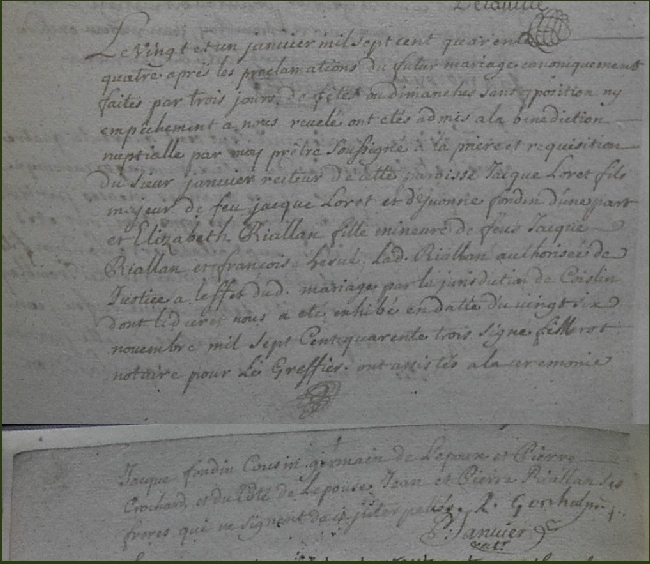 Le vingt et un janvier mil sept cent quarente
quatre après les proclamations du futur mariage canoniquement
faites par trois jours de fêtes ou dimanches sans oposition ny
empêchement a nous revelé ont etés admis a la benediction
nuptialle par moy prêtre soussigné a la priere et requisition
du sieur janvier recteur de cette paroisse Jacque Loret fils
majeur de feu jacque Loret et d'yvonne fondin d'une part
et Elizabeth Riallan fille mineure de feus Jacque
Riallan et françoise lad. Riallan authorisée de
Justice a l'effet dud. mariage par la jurisdiction de Coislin
dont le decret nous a eté exhibé en datte du vingt six
novembre mil sept Cent quarente trois signé
notaire pour le Greffier. ont assistés a la ceremonie
Jacque fondin Cousin germain de Lepoux et Pierre
Crochard et du Coté de Lepouse Jean et Pierre Riallan ses
freres qui ne signent de ce
P. Janvier